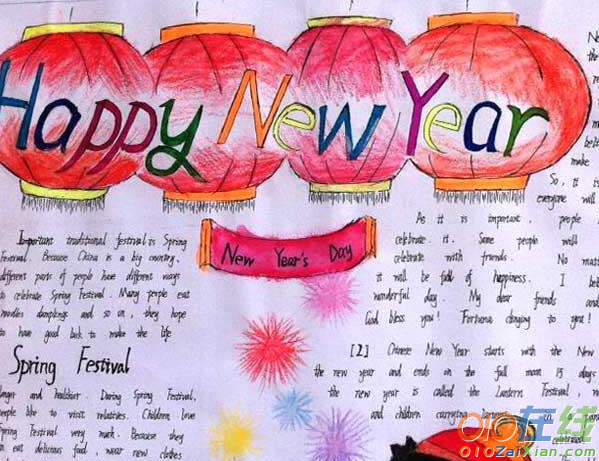 Happy New Year
New Year's Day
Important traditional festival is Spring
Festival. Because China is a big country,
different parts of people have different ways
to celebrate Spring Festival. Many people eat
noodles dumplings and so on, they hope
to have good back to make the life
Spring Festival
longer and healthier During Spring Festival,
people like to visit relatives. Children love
Spring Festival very much. Because they
eat delicious food, wear new clothes
make
So, it is
everyone will
As it is important, people
celebrate it. Some people will
celebrate with friends. No matt
it will be full of happiness. I bel
wonderful day. My dear friends and
God bless you! Fortune clinging to you!
[2] Chinese New Year starts with the New
the new year and ends on the full moon 15 days
the new year is called the Lantern Festival, w
and children carrying lanterns in
在线
010ZaiXian.com